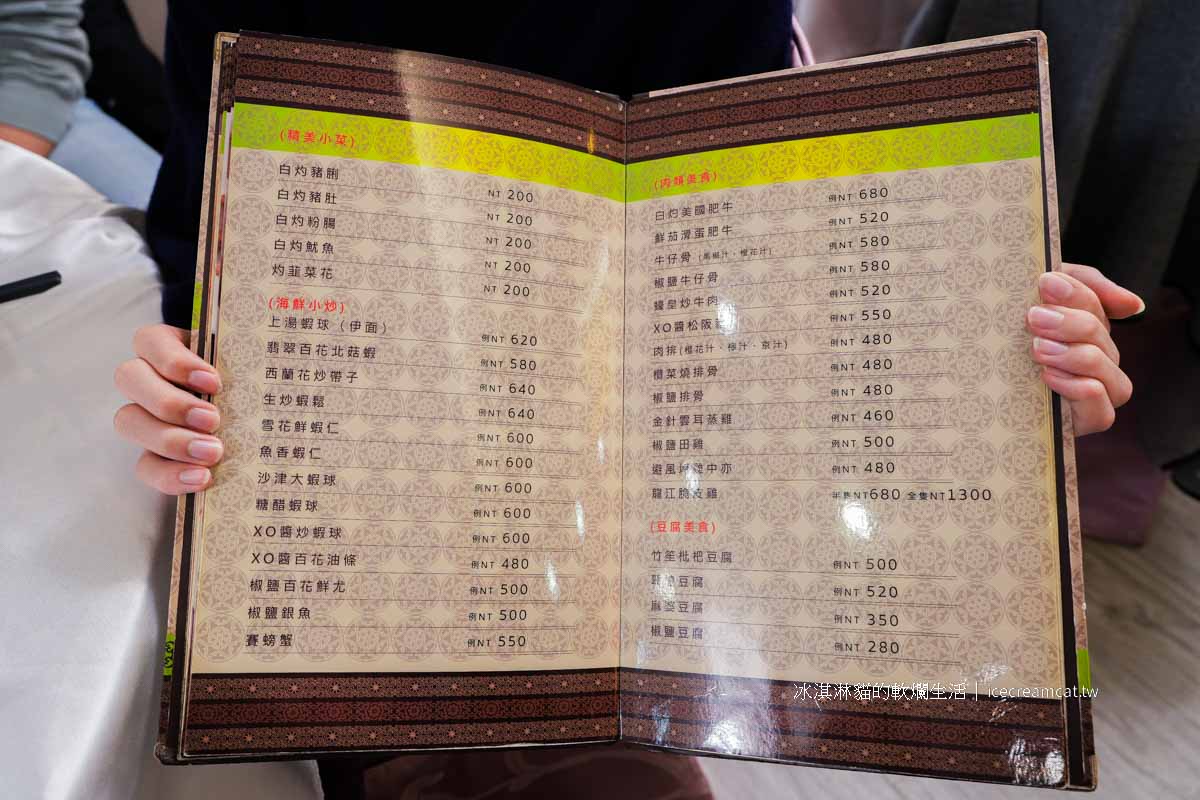 (精美小菜)
白灼豬脷 NT 200
白灼豬肚 NT 200
白灼粉腸 NT 200
白灼魷魚 NT 200
灼韮菜花 NT 200
(海鮮小炒)
上湯蝦球（伊面） 例NT 620
翡翠百花北菇蝦 例NT 580
西蘭花炒帶子 例NT 640
生炒蝦鬆 例NT 640
雪花鮮蝦仁 例NT 600
魚香蝦仁 例NT 600
沙津大蝦球 例NT 600
糖醋蝦球 例NT 600
XO醬炒蝦球 例NT 600
XO醬百花油條 例NT 480
椒鹽百花鮮尤 例NT 500
椒鹽銀魚 例NT 500
賽螃蟹 例NT 550
(肉類美食)
白灼美國肥牛 例NT 680
鮮茄滑蛋肥牛 例NT 520
牛仔骨 (黑椒汁、橙花汁) 例NT 580
椒鹽牛仔骨 例NT 580
蠔皇炒牛肉 例NT 520
XO醬松阪 例NT 550
肉排(橙花汁、椒汁、京汁) 例NT 480
欖菜燒排骨 例NT 480
椒鹽排骨 例NT 480
金針雲耳蒸雞 例NT 460
椒鹽田雞 例NT 500
避風塘雞中亦 例NT 480
龍江脆皮雞 半隻NT680 全隻NT1300
(豆腐美食)
竹笙枇杷豆腐 例NT 500
豆腐 例NT 520
麻婆豆腐 例NT 350
椒鹽豆腐 例NT 280
冰淇淋貓的軟爛生活｜icecreamcat.tw